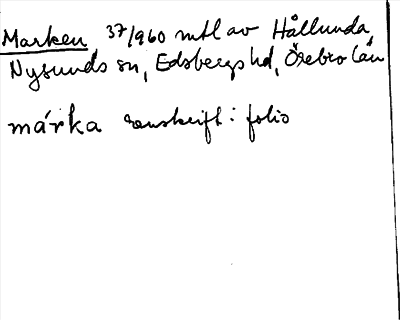 Marken, 37/960 mtl av Hållunda,
Nysunds sn, Edsbergs hd, Örebro län
márka renskrift i folio